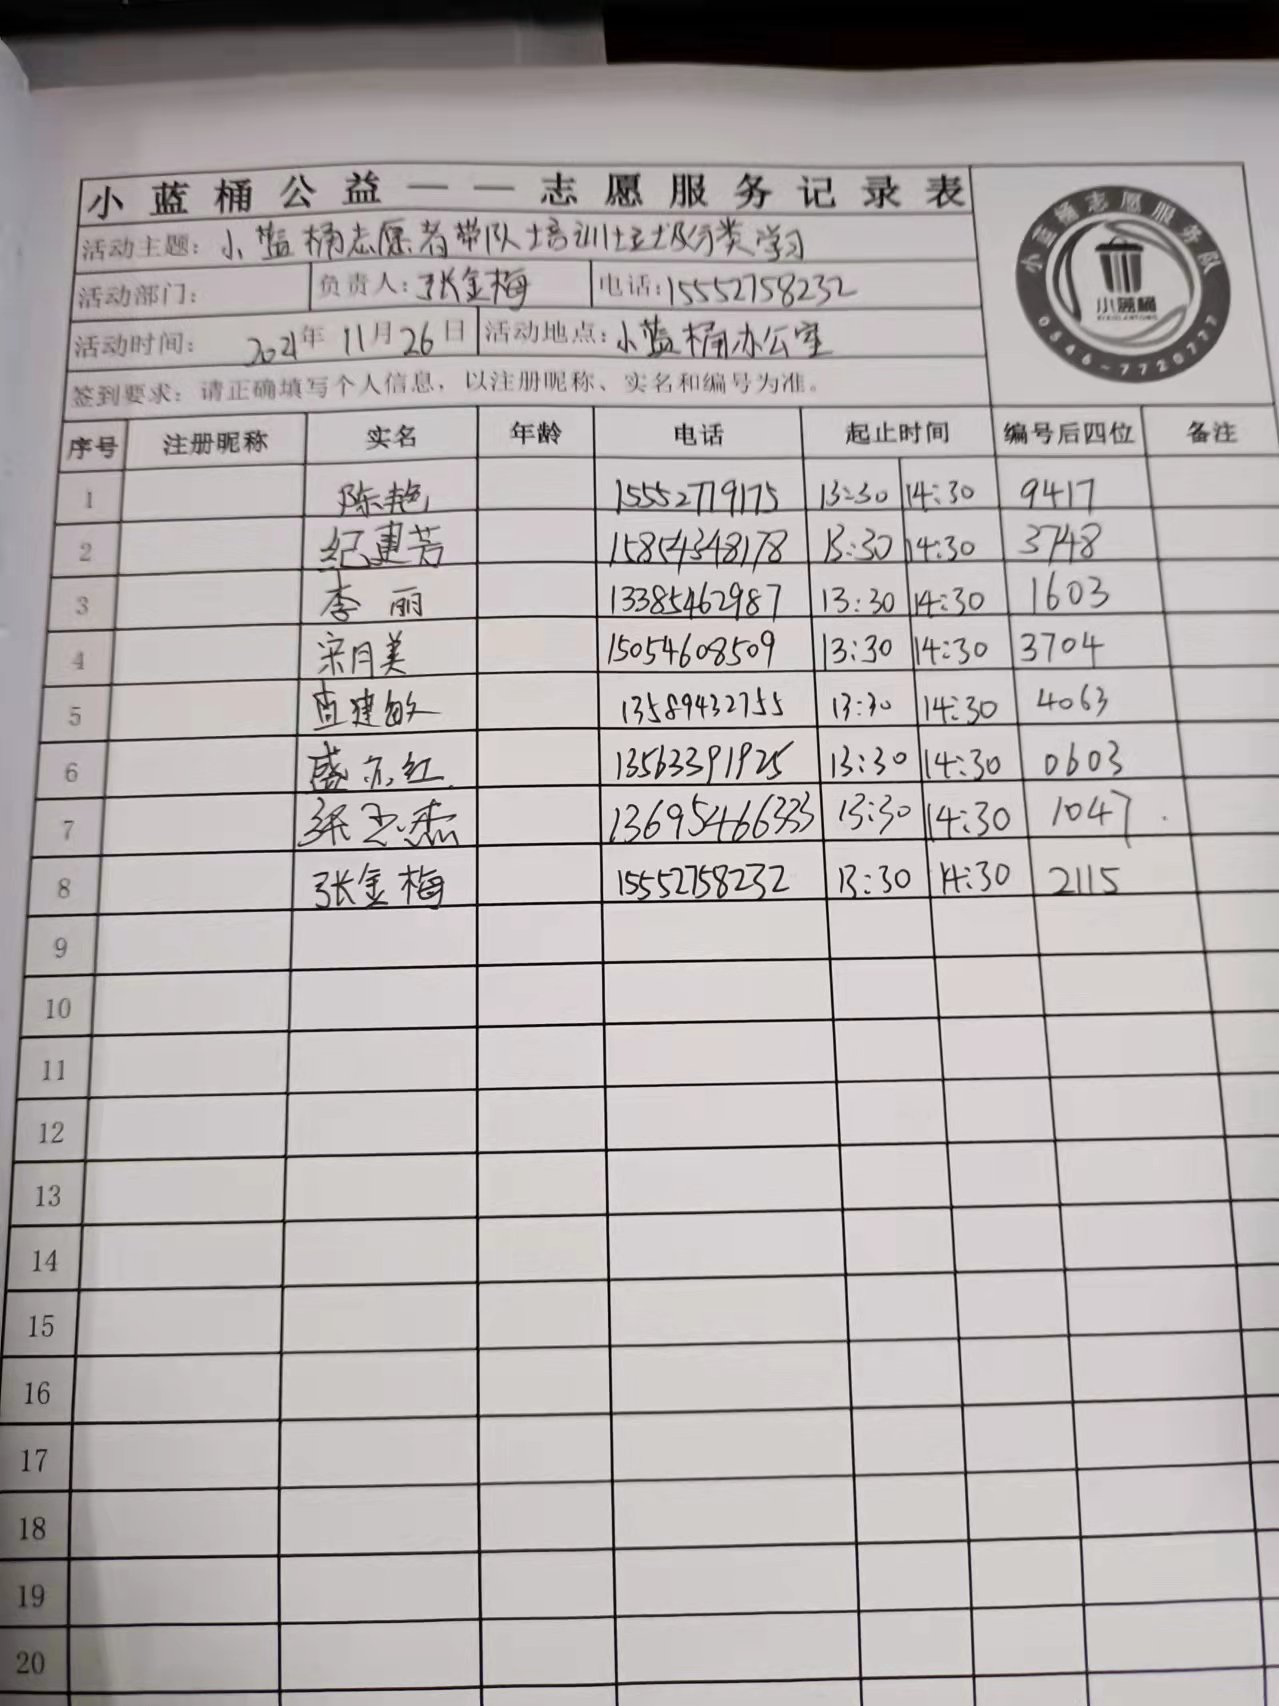 小蓝桶公益——志愿服务记录表
活动主题：小蓝桶志愿者带队培训垃圾分类学习
活动部门： 负责人：张金梅 电话：15552758232
活动时间： 2021年11月26日 活动地点：小蓝桶办公室
签到要求：请正确填写个人信息，以注册昵称、实名和编号为准。
小蓝桶志愿服务队
小蓝桶
XIAOLANTONG
0546-7720777
序号 注册昵称 实名 年龄 电话 起止时间 编号后四位 备注
1 陈艳 15552719175 13:30 14:30 9417
2 纪建芳 15854348178 13:30 14:30 3748
3 李丽 13385462987 13:30 14:30 1603
4 宋月美 15054608509 13:30 14:30 3704
5 建敏 13589432755 13:30 14:30 4063
6 盛红 13563391925 13:30 14:30 0603
7 13695466333 13:30 14:30 1047
8 张金梅 15552758232 13:30 14:30 2115
9
10
11
12
13
14
15
16
17
18
19
20